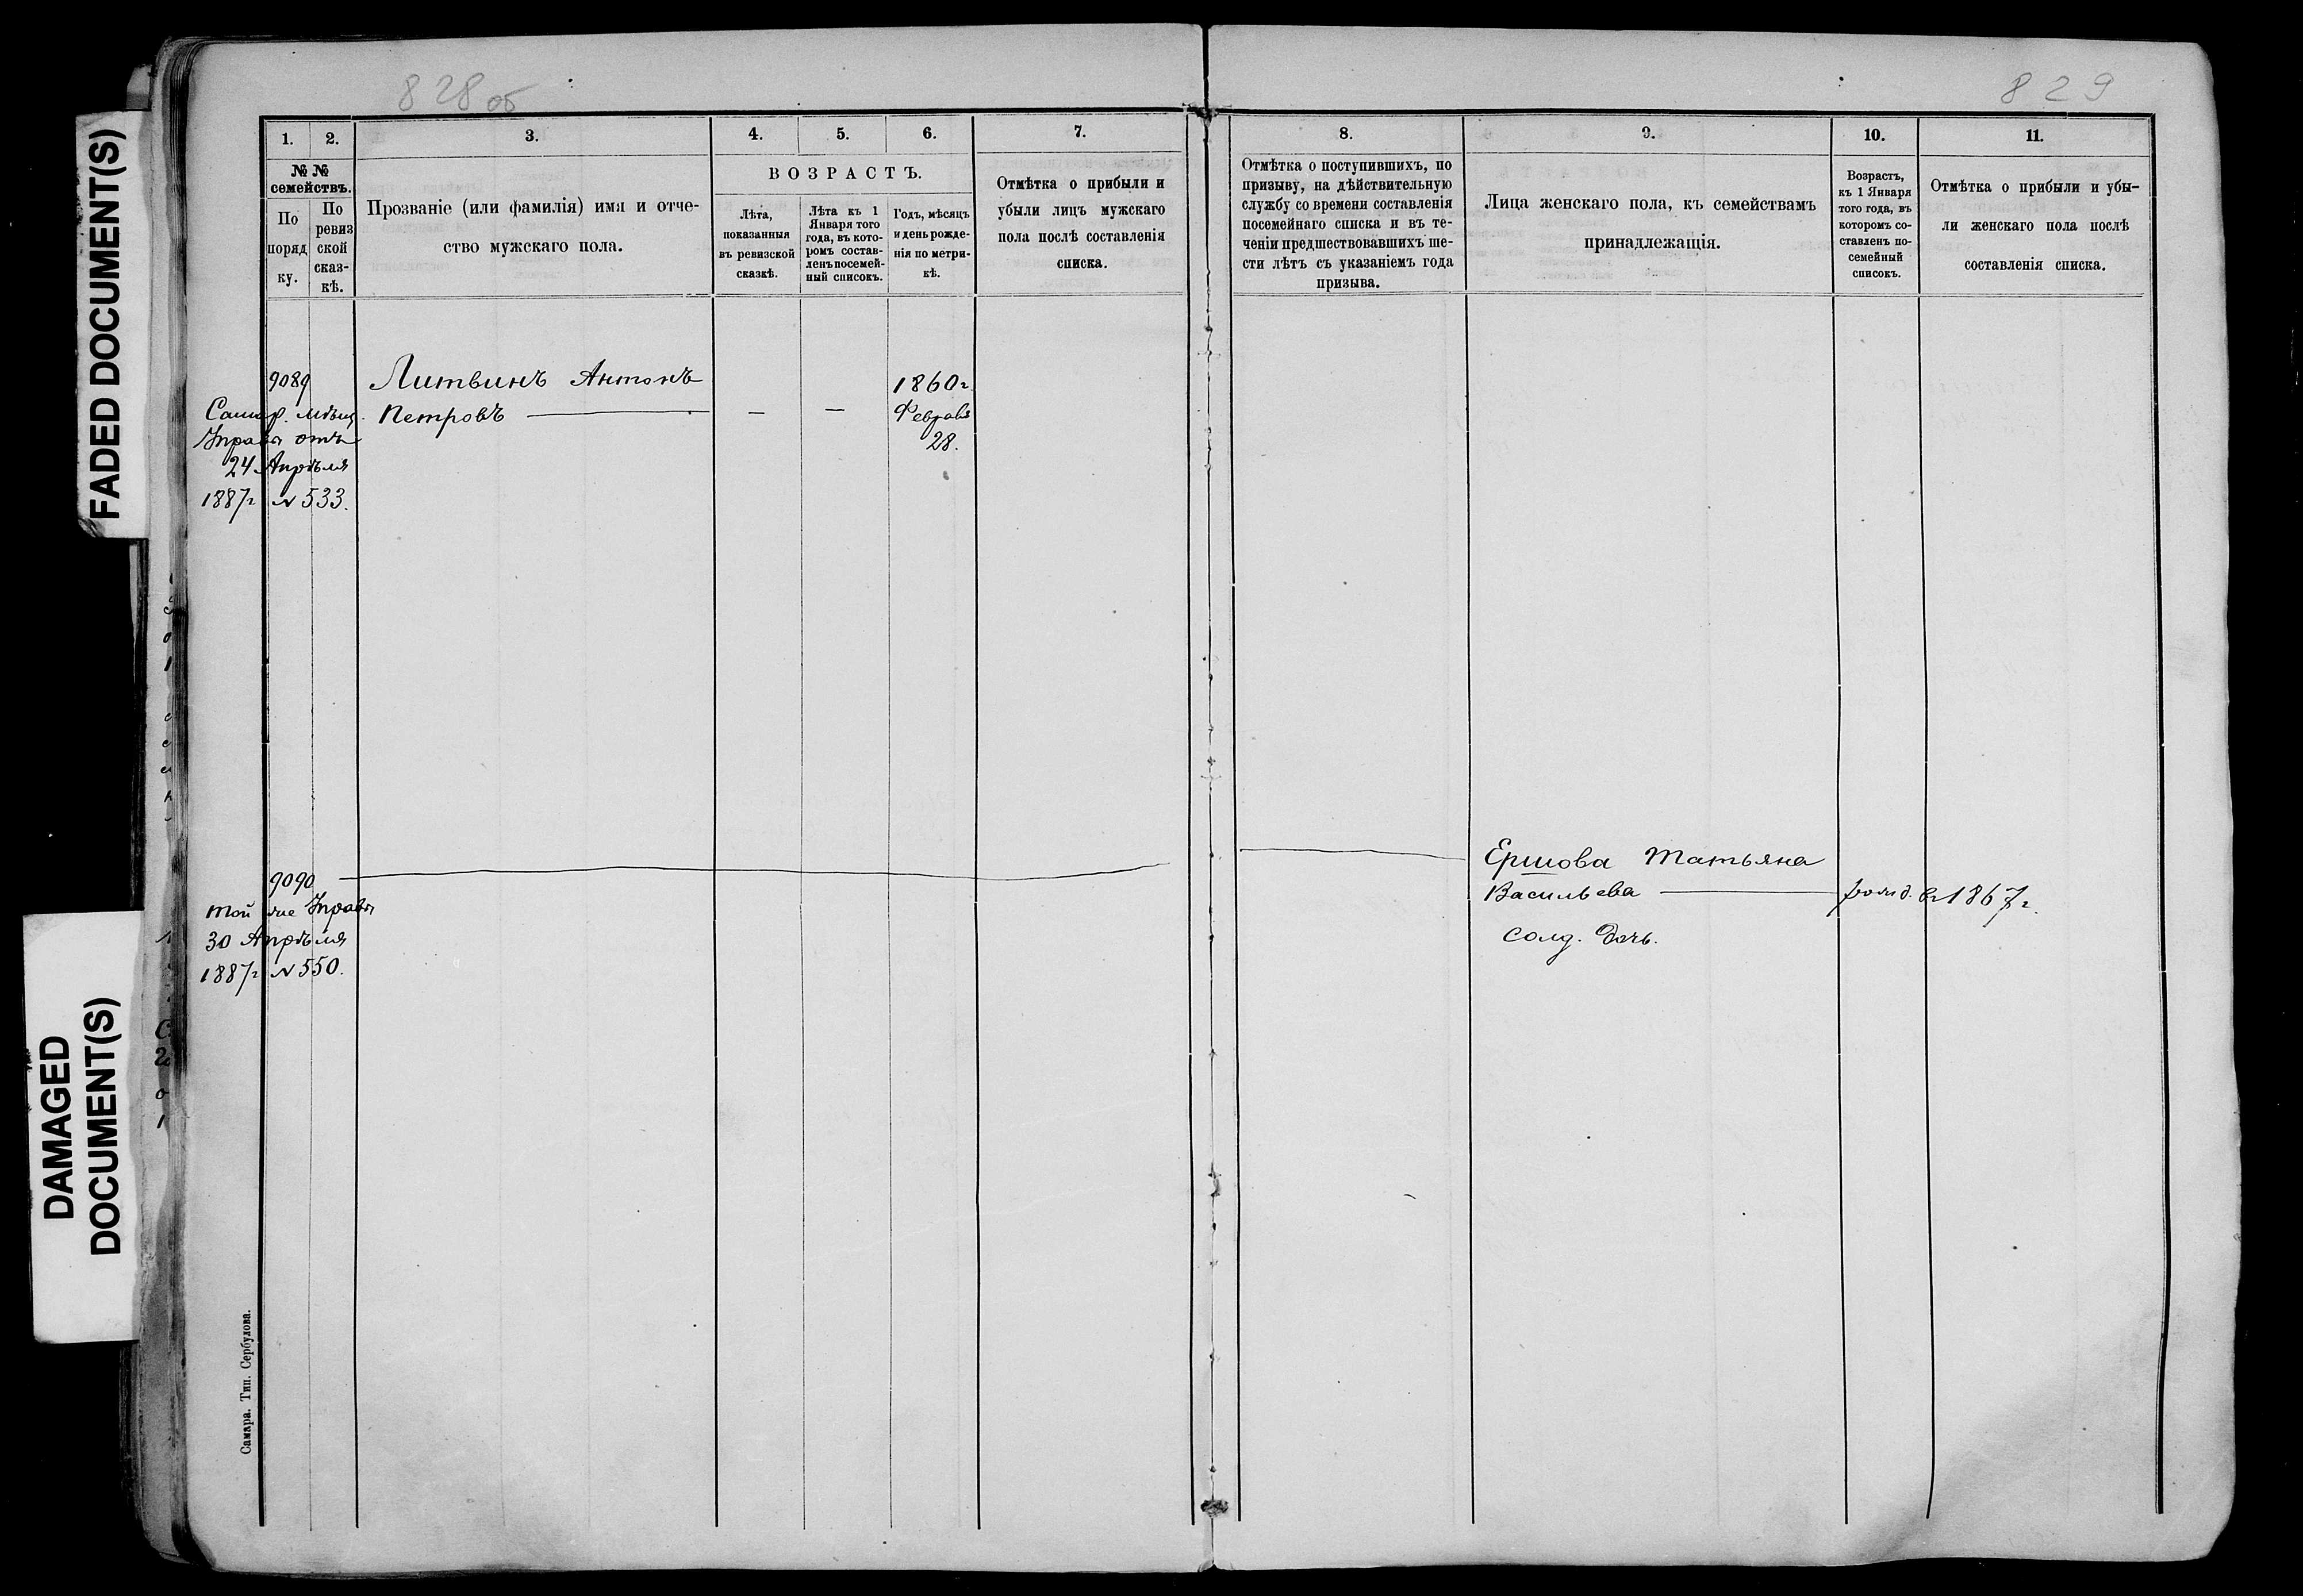 828 об
829
FADED DOCUMENT(S)
DAMAGED
DOCUMENT(S)
1.
2.
3.
4.
5.
6.
7.
№ №
семействъ.
По
поряд
ку.
По
ревиз
ской
сказ-
кѣ.
Прозваніе (или фамилія) имя и отче-
ство мужскаго пола.
ВОЗРАСТЪ.
Лѣта,
показанныя
въ ревизской
сказкѣ.
Лѣта къ 1
Января того
года, въ кото-
ромъ состав-
ленъ посемей-
ный списокъ.
Годъ, мѣсяцъ
и день рожде-
нія по метри-
кѣ.
Отмѣтка о прибыли и
убыли лицъ мужскаго
пола послѣ составленія
списка.
8.
9.
10.
11.
Отмѣтка о поступившихъ, по
призыву, на дѣйствительную
службу со времени составленія
посемейнаго списка и въ те-
ченіи предшествовавшихъ ше-
сти лѣтъ съ указаніемъ года
призыва.
Лица женскаго пола, къ семействамъ
принадлежащія.
Возрастъ,
къ 1 Января
того года, въ
которомъ со-
ставленъ по-
семейный
списокъ.
Отмѣтка о прибыли и убы-
ли женскаго пола послѣ
составленія списка.
9089
Самар. мѣщ.
Управы отъ
24 Апрѣля
1887г №533.
Литвинъ Антонъ
Петровъ — — —
1860г
Февраля
28.
9090
Той же Управы
30 Апрѣля
1887г №550.
Ершова Татьяна
Васильева — рожд. въ 1867г.
солд. дочь.
Самара. Тип. Сербулова.